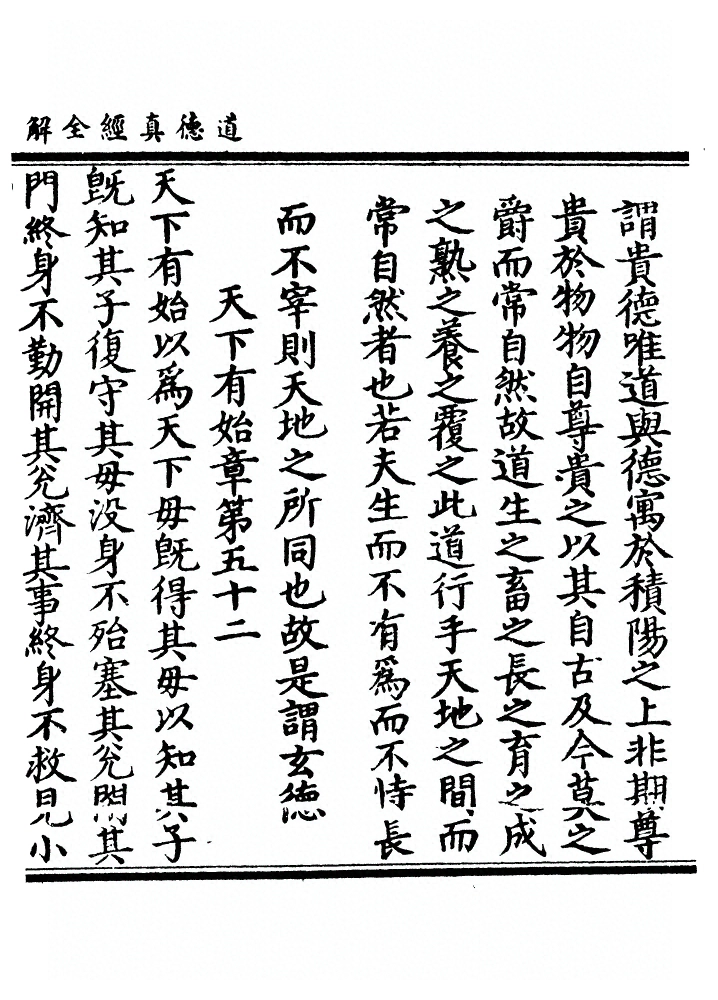 道德真經全解
謂貴德唯道與德寓於積陽之上非期尊
貴於物物自尊貴之以其自古及今莫之
爵而常自然故道生之畜之長之育之成
之熟之養之覆之此道行乎天地之間而
常自然者也若夫生而不有為而不恃長
而不宰則天地之所同也故是謂玄德
天下有始章第五十二
天下有始以為天下母既得其母以知其子
既知其子復守其母没身不殆塞其兌閉其
門終身不勤開其兌濟其事終身不救見小